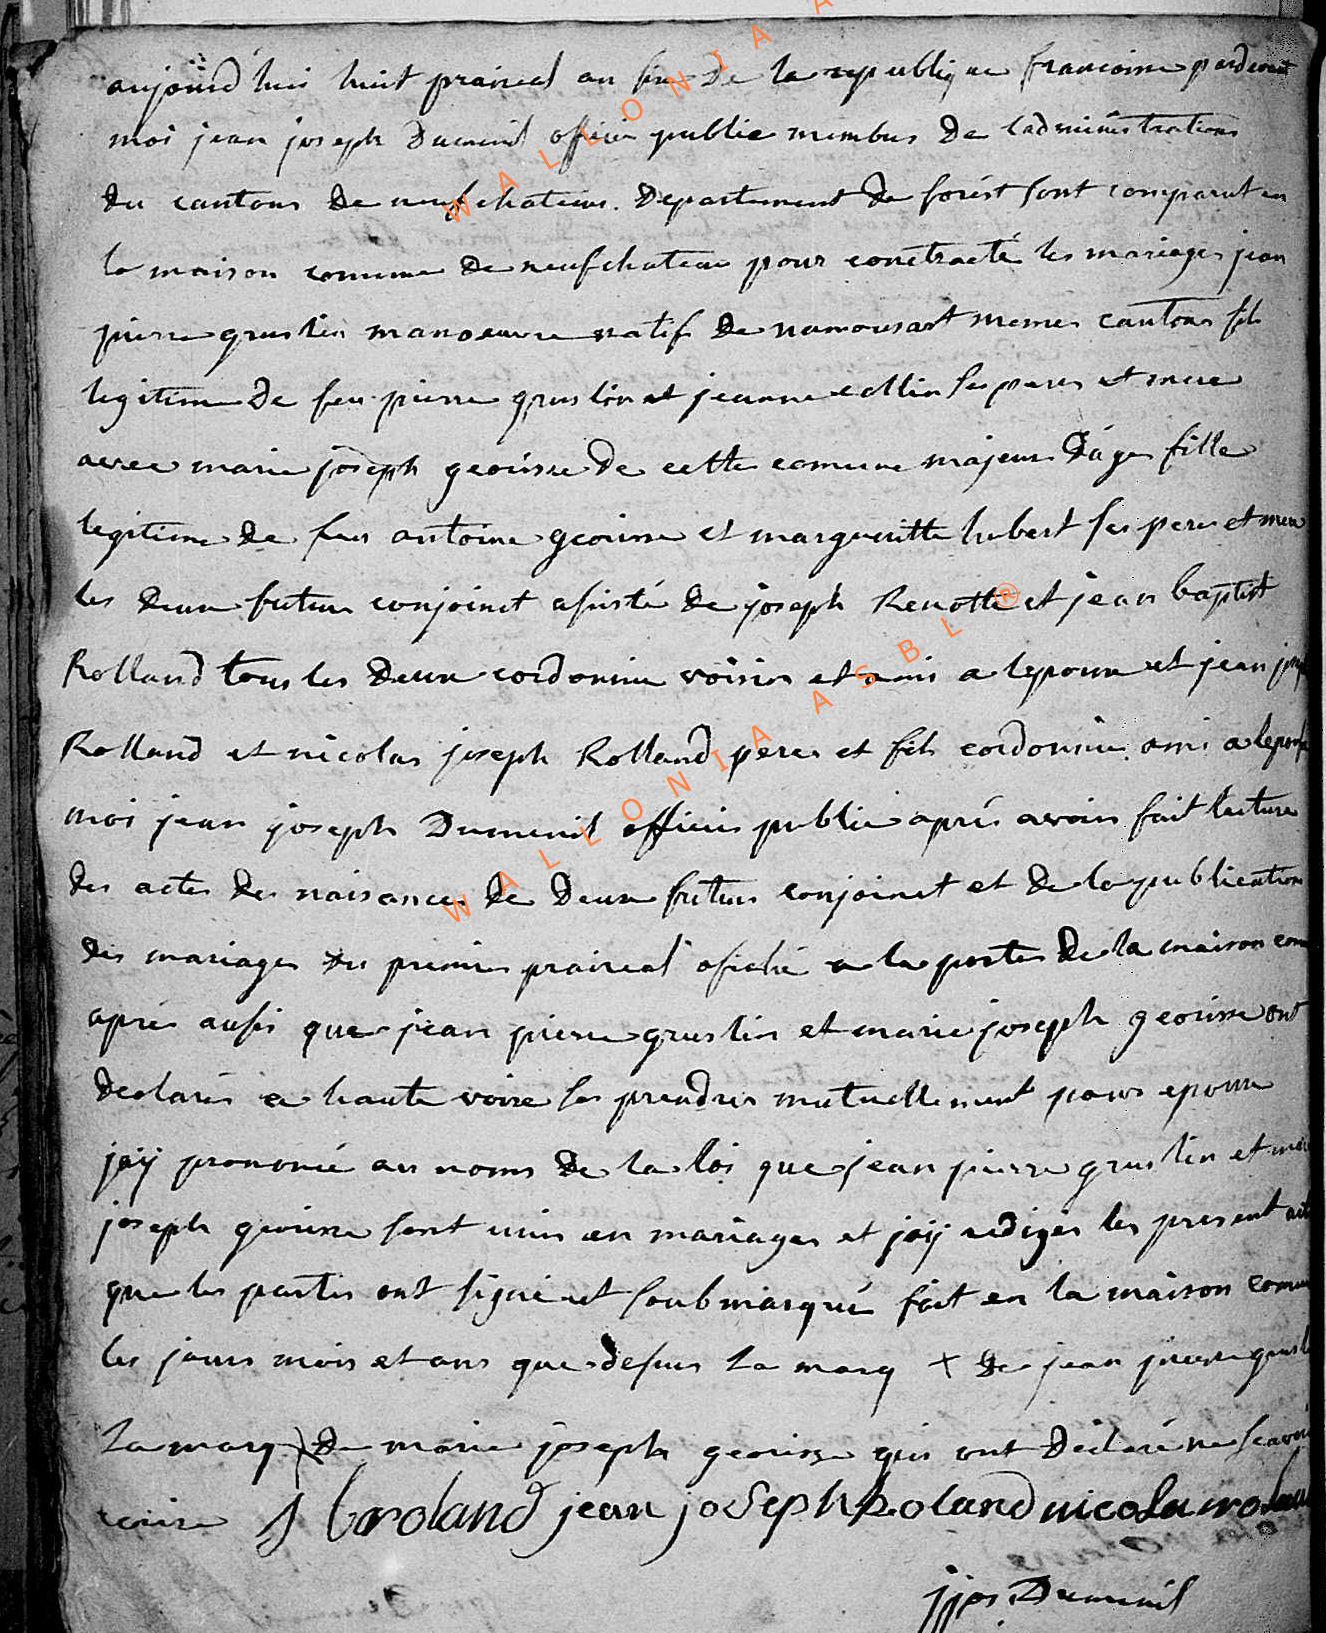 aujourd'hui huit praireal an six de la republique francoise pardevant
moi jean joseph Dumenil officie public membus de ladministrations
du cantons de neufchateau. Departement de forest sont comparut en
la maison comune de neufchateau pour contracté les mariages jean
pierre gruslin manoeuvre natif de namousart memes cantons fils
legitime de feu pierre gruslin et jeanne collin ses peres et mere
avec marie joseph geoirse de cette comune majeur d'áge fille
legitime de feu antoine geoirse et margueritte hubert ses pere et mere
les deux futur conjoinct asisté de joseph Renotte et jean baptist
Rolland tous les deux cordonnie voisin et ami a lepoux et jean josep
Rolland et nicolas joseph Rolland peres et fils cordonnie ami a lepouse
moi jean joseph Dumenil officie public aprés avoir fait lecture
des actes de naisances de deux futur conjoinct et de la publication
des mariages du premie praireal afiché a la portes de la maison com
aprés ausis que jean pierre gruslin et marie joseph geoirse ont
declarés a haute voixe se prendres mutuellement pour epoux
jaÿ prononcé au noms de la loi que jean pierre gruslin et marie
joseph geoirse sont unis en mariages et jaÿ rediges les present acte
que les parties ont signé et soubmarqué fait en la maison comune
les jours mois et ans que desus la marq X de jean pierre grusl
la marq de marie joseph geoirse qui ont déclaré ne scavoir
ecrire J b roland jean joseph Roland nicola roland
jjos Dumenil